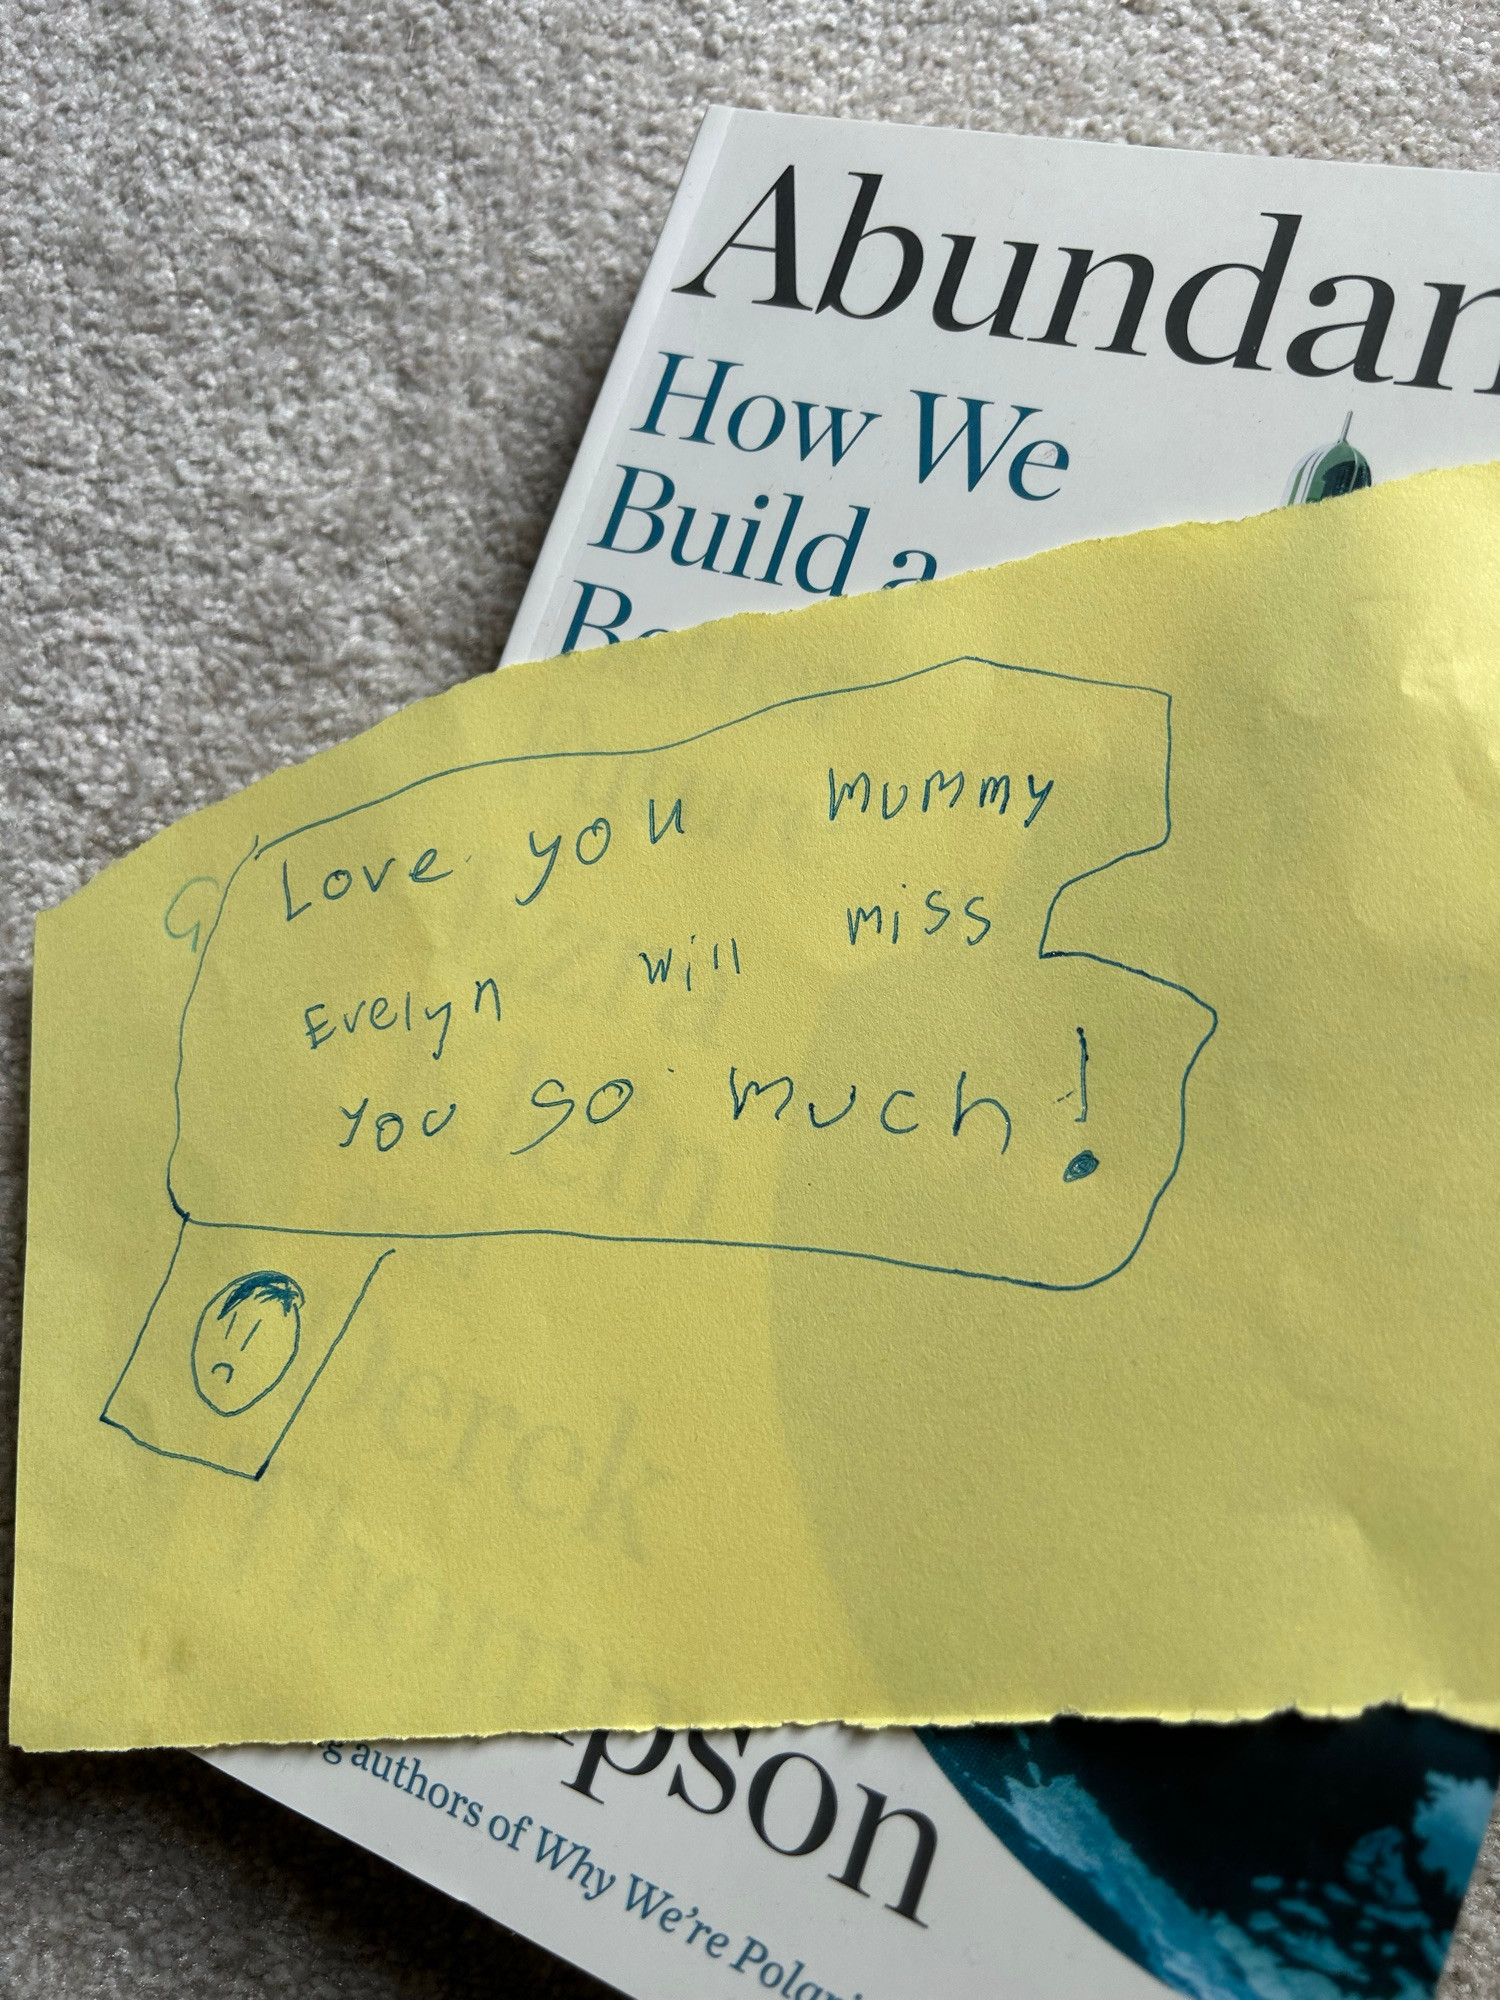 Abundan
How We
Build a
Be
Love you mummy
Evelyn will miss
you so much!
G
Derek
Thompson
authors of Why We're Polari